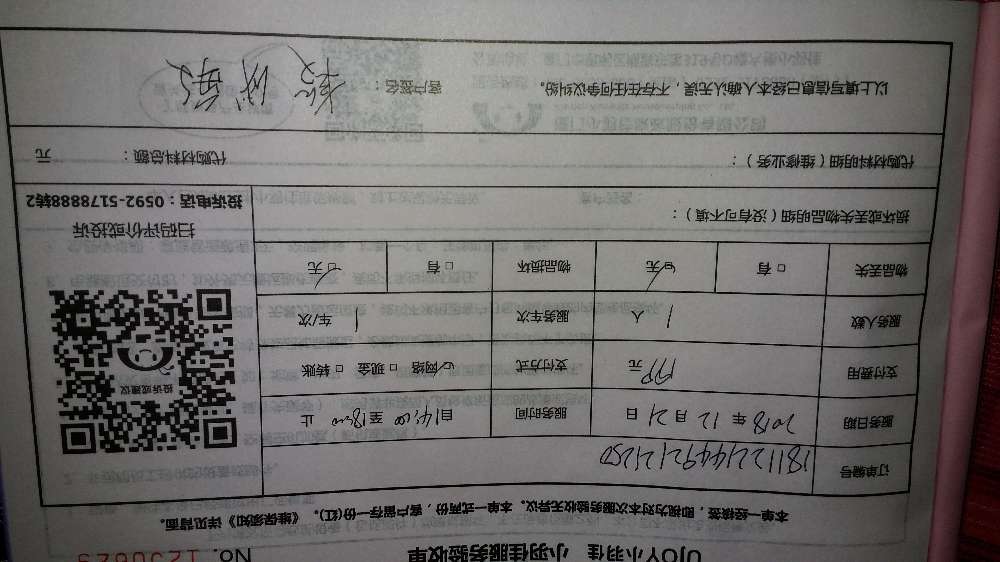 UJOY小羽佳 小羽佳服务验收单 No. 1230629
本单一经接签，即视为对本次服务验收无异议。本单一式两份，客户留存一份(红)。《维保须知》详见背面。
订单编号
服务日期 2018 年 12 月 21 日 服务时间 自 14:00 至 18:00 止
支付费用 199 元 支付方式 网络 现金 转账
服务人数 1 人 服务车次 1 车/次
物品丢失 有 无 物品损坏 有 无
投诉或建议
扫码评价或投诉
投诉电话：0592-5178888转2
损坏或丢失物品明细（没有可不填）：
代购材料明细（维修业务）： 代购材料总额： 元
以上填写信息已经本人确认无误，不存在任何争议纠纷。 客户签名：